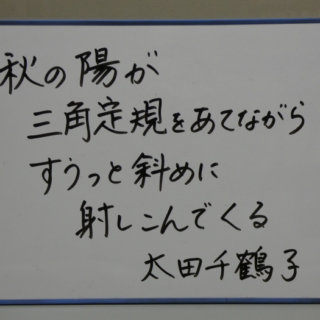 秋の陽が
三角定規をあてながら
すうっと斜めに
射しこんでくる
太田千鶴子